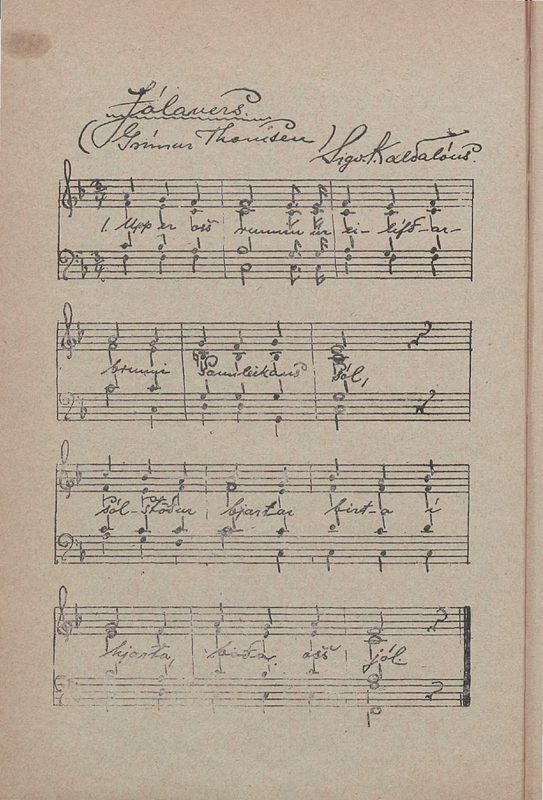 Jólavers.
(Grímur Thomsen) Sigv. Kaldalóns.
1. Upp er oss runnin úr ei- lífð-ar-
brunni Sannleikans sól,
sól-stöður bjart-ar birt-a í
hjarta, boða oss jól.